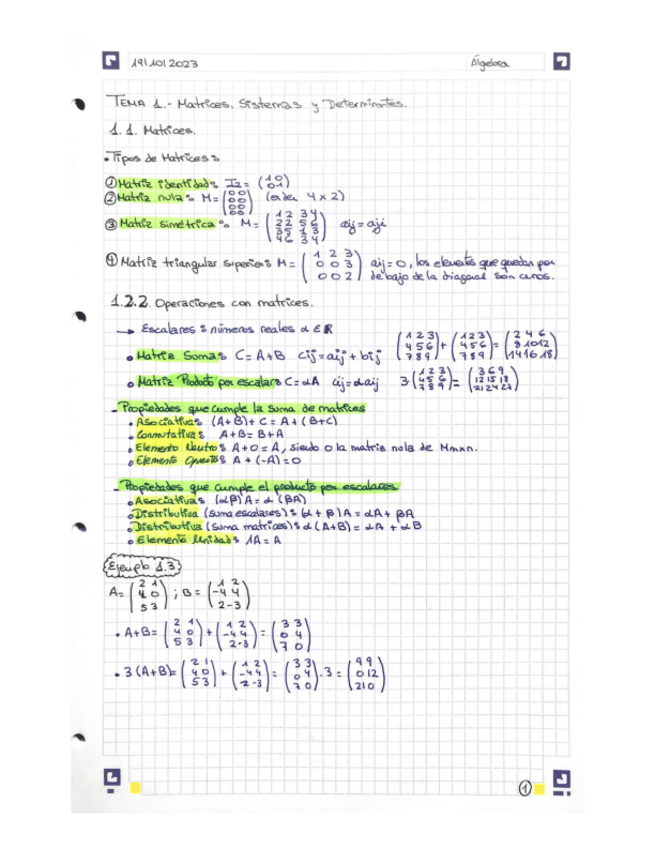 19/10/2023 Álgebra
TEMA 1.- Matrices, Sistemas y Determinantes.
1.1. Matrices.
• Tipos de Matrices:
① Matriz identidad: I2 = (1 0 / 0 1)
② Matriz nula: M = (0 0 / 0 0 / 0 0 / 0 0) (orden 4x2)
③ Matriz simétrica: M = (1 2 3 4 / 2 2 5 6 / 3 5 1 3 / 4 6 3 4) aij = aji
④ Matriz triangular superior: M = (1 2 3 / 0 0 3 / 0 0 2) aij = 0, los elementos que quedan por
debajo de la diagonal son ceros.
1.2.2. Operaciones con matrices.
→ Escalares: números reales α ∈ ℝ
• Matriz Suma: C = A+B cij = aij + bij (1 2 3 / 4 5 6 / 7 8 9) + (1 2 3 / 4 5 6 / 7 8 9) = (2 4 6 / 8 10 12 / 14 16 18)
• Matriz Producto por escalar: C = αA cij = αaij 3 (1 2 3 / 4 5 6 / 7 8 9) = (3 6 9 / 12 15 18 / 21 24 27)
- Propiedades que cumple la suma de matrices
• Asociativa: (A+B)+C = A+(B+C)
• Conmutativa: A+B = B+A
• Elemento Neutro: A+0 = A, siendo 0 la matriz nula de Mmxn.
• Elemento Opuesto: A + (-A) = 0
- Propiedades que cumple el producto por escalares
• Asociativa: (αβ)A = α(βA)
• Distributiva (suma escalares): (α + β)A = αA + βA
• Distributiva (suma matrices): α(A+B) = αA + αB
• Elemento Unidad: 1A = A
Ejemplo 1.3
A = (2 1 / 4 0 / 5 3) ; B = (1 2 / -4 4 / 2 -3)
• A+B = (2 1 / 4 0 / 5 3) + (1 2 / -4 4 / 2 -3) = (3 3 / 0 4 / 7 0)
• 3(A+B) = (2 1 / 4 0 / 5 3) + (1 2 / -4 4 / 2 -3) = (3 3 / 0 4 / 7 0) · 3 = (9 9 / 0 12 / 21 0)
①